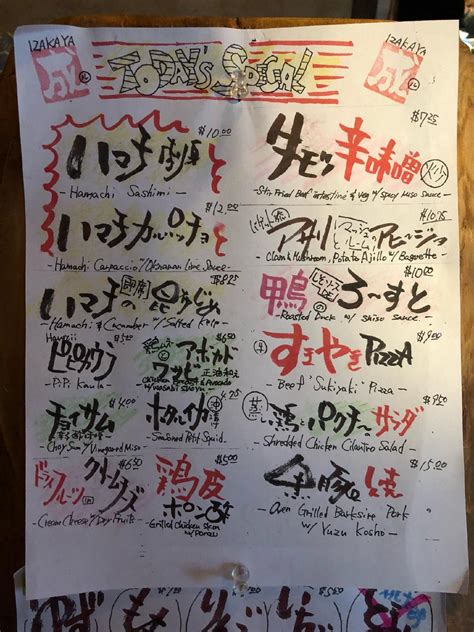 IZAKAYA
TODAY'S SPECIAL
IZAKAYA
$10.00
ハマチ刺身
- Hamachi Sashimi -
$12.00
ハマチカルパッチョ
- Hamachi Carpaccio w/ Okinawan Lime Sauce -
ハマチの
- Hamachi & Cucumber w/ Salted Kelp -
ピピカウラ
- P.P. Kaula -
アボカド
Chicken Breast & Avocado
w/ Wasabi Shoyu
$4.00
チョイサム
- Choy Sum w/ Vinegared Miso -
4.75
ホタルイカ
- Seasoned Petit Squid -
$6.50
ドライフルーツ in クリームチーズ
- Cream Cheese w/ Dry Fruits -
$5.00
鶏皮ポン酢
- Grilled Chicken Skin
w/ Ponzu
$7.25
牛モツ辛味噌
- Stir Fried Beef intestine & Veg w/ Spicy Miso Sauce -
$10.75
アサリとマッシュルームのアヒージョ
- Clam & Mushroom, Potato Ajillo w/ Baguette -
$10.00
鴨ろーすと
- Roasted Duck w/ Shiso Sauce -
$9.00
すきやきPIZZA
- Beef "Sukiyaki" Pizza -
$9.50
蒸し鶏とパクチーサラダ
- Shredded Chicken Cilantro Salad -
$15.00
黒豚焼
- Oven Grilled Barkshire Pork
w/ Yuzu Kosho -